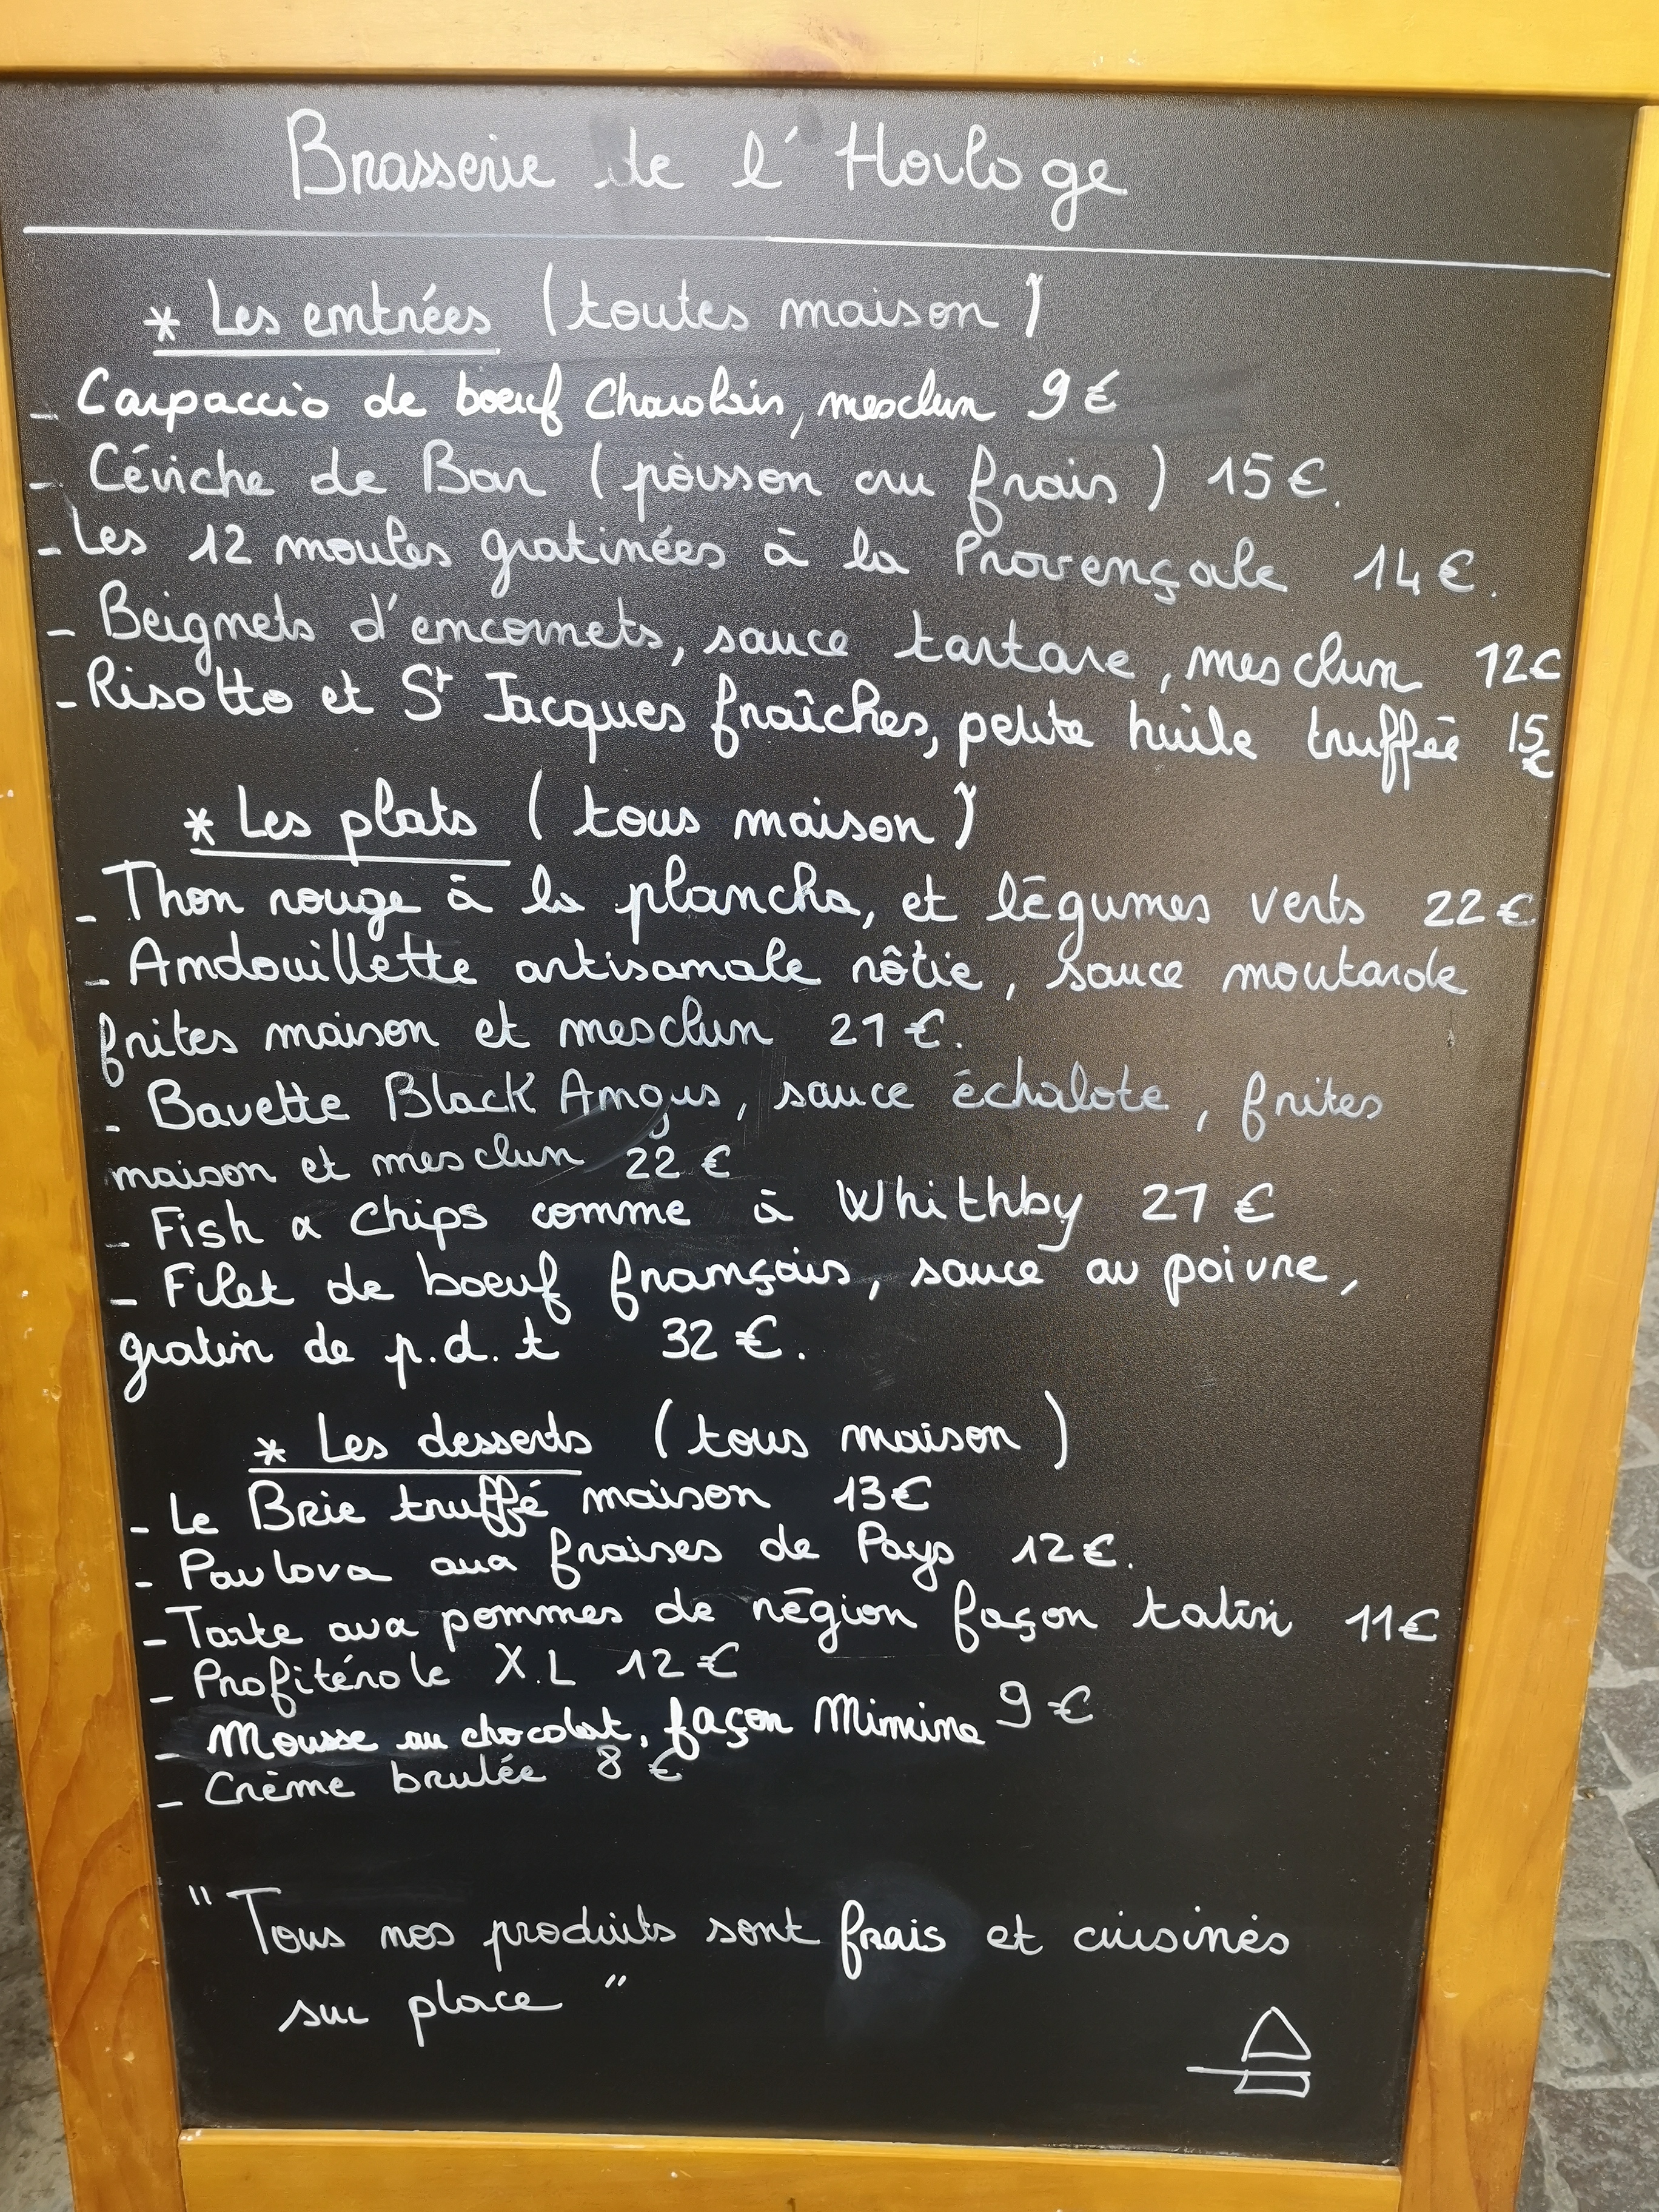 Brasserie de l'Horloge
* Les entrées (toutes maison)
- Carpaccio de boeuf Charolais, mesclun 9€
- Céviche de Bar (poisson cru frais) 15€.
- Les 12 moules gratinées à la Provençale 14€.
- Beignets d'encornets, sauce tartare, mesclun 12€
- Risotto et St Jacques fraîches, petite huile truffée 15€
* Les plats (tous maison)
- Thon rouge à la plancha, et légumes verts 22€
- Andouillette artisanale rôtie, sauce moutarde
frites maison et mesclun 21€.
- Bavette Black Angus, sauce échalote, frites
maison et mesclun 22€
- Fish & Chips comme à Whithby 21€
- Filet de boeuf français, sauce au poivre,
gratin de p.d.t 32€.
* Les desserts (tous maison)
- Le Brie truffé maison 13€
- Pavlova aux fraises de Pays 12€.
- Tarte aux pommes de région façon tatin 11€
- Profitérole X.L 12€
- Mousse au chocolat, façon Mimine 9€
- Crème brulée 8€
"Tous nos produits sont frais et cuisinés
sur place"